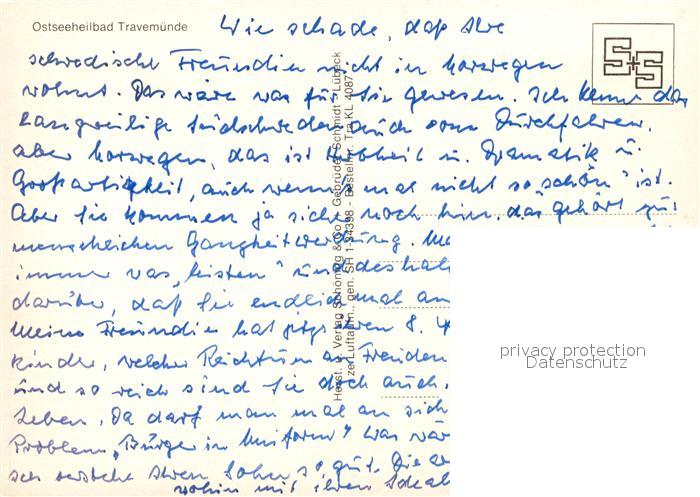 Ostseeheilbad Travemünde
Wie schade, daß Ihre
schwedische Freundin nicht in Norwegen
wohnt. Das wäre was für Sie gewesen. Ich kenne das
langweilige Südschweden auch vom Durchfahren,
aber Norwegen, das ist Hoheit u. Dramatik u.
Großartigkeit, auch wenn's mal nicht so „schön" ist.
Aber Sie kommen ja sicher noch hin. das gehört zur
menschlichen
immer was „leisten" und deshalb
darüber, daß Sie endlich mal an
Meine Freundin hat jetzt den 8.
kinder, welcher Reichtum an Freuden
und so reich sind Sie doch auch.
Leben. Da darf man mal an sich
Problem „Bürger in Uniform" was wär
ich verstehe Ihren Sohn so gut. Die
wohin mit ihren Ideal
Herst. u. Verlag Schöning & Co + Gebrüder Schmidt - Lübeck
Luftaufn., gen. SH 1-34398 - Bestellnr. Tra KL 4087
S+S
privacy protection
Datenschutz